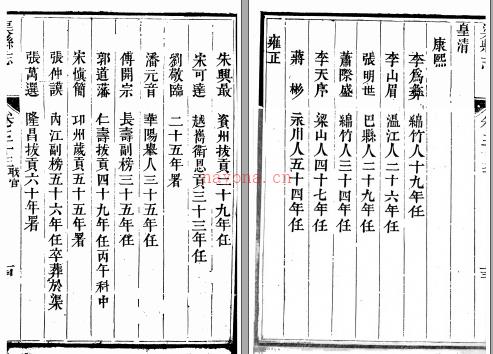 皇清
康熙
李為彝 綿竹人十九年任
李山眉 溫江人二十六年任
張明世 巴縣人二十九年任
蕭際盛 綿竹人三十四年任
李天序 梁山人四十七年任
蔣彬 永川人五十四年任
雍正
朱興最 資州拔貢二十九年任
宋可達 越嶲衛恩貢三十三年任
劉敬臨 二十五年署
潘元音 華陽舉人三十五年任
傅開宗 長壽副榜三十五年任
郭道藩 仁壽拔貢四十九年任丙午科中
宋慎簡 卭州歲貢五十年署
張仲謨 內江副榜五十六年任卒葬於渠
張萬選 隆昌拔貢六十年署
縣志
職官
nayona.cn